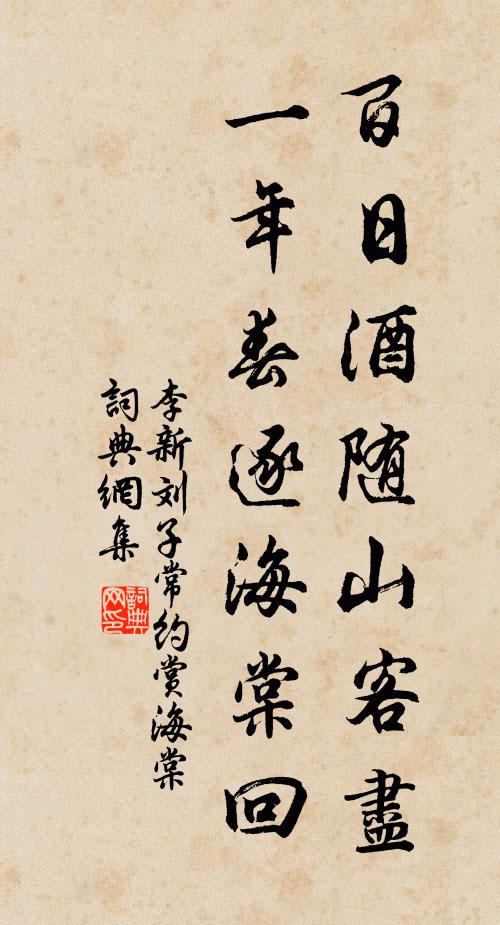 百日酒随山客盡
一年春逐海棠回
李新刘子常约赏海棠
詞典網集
詞典网印